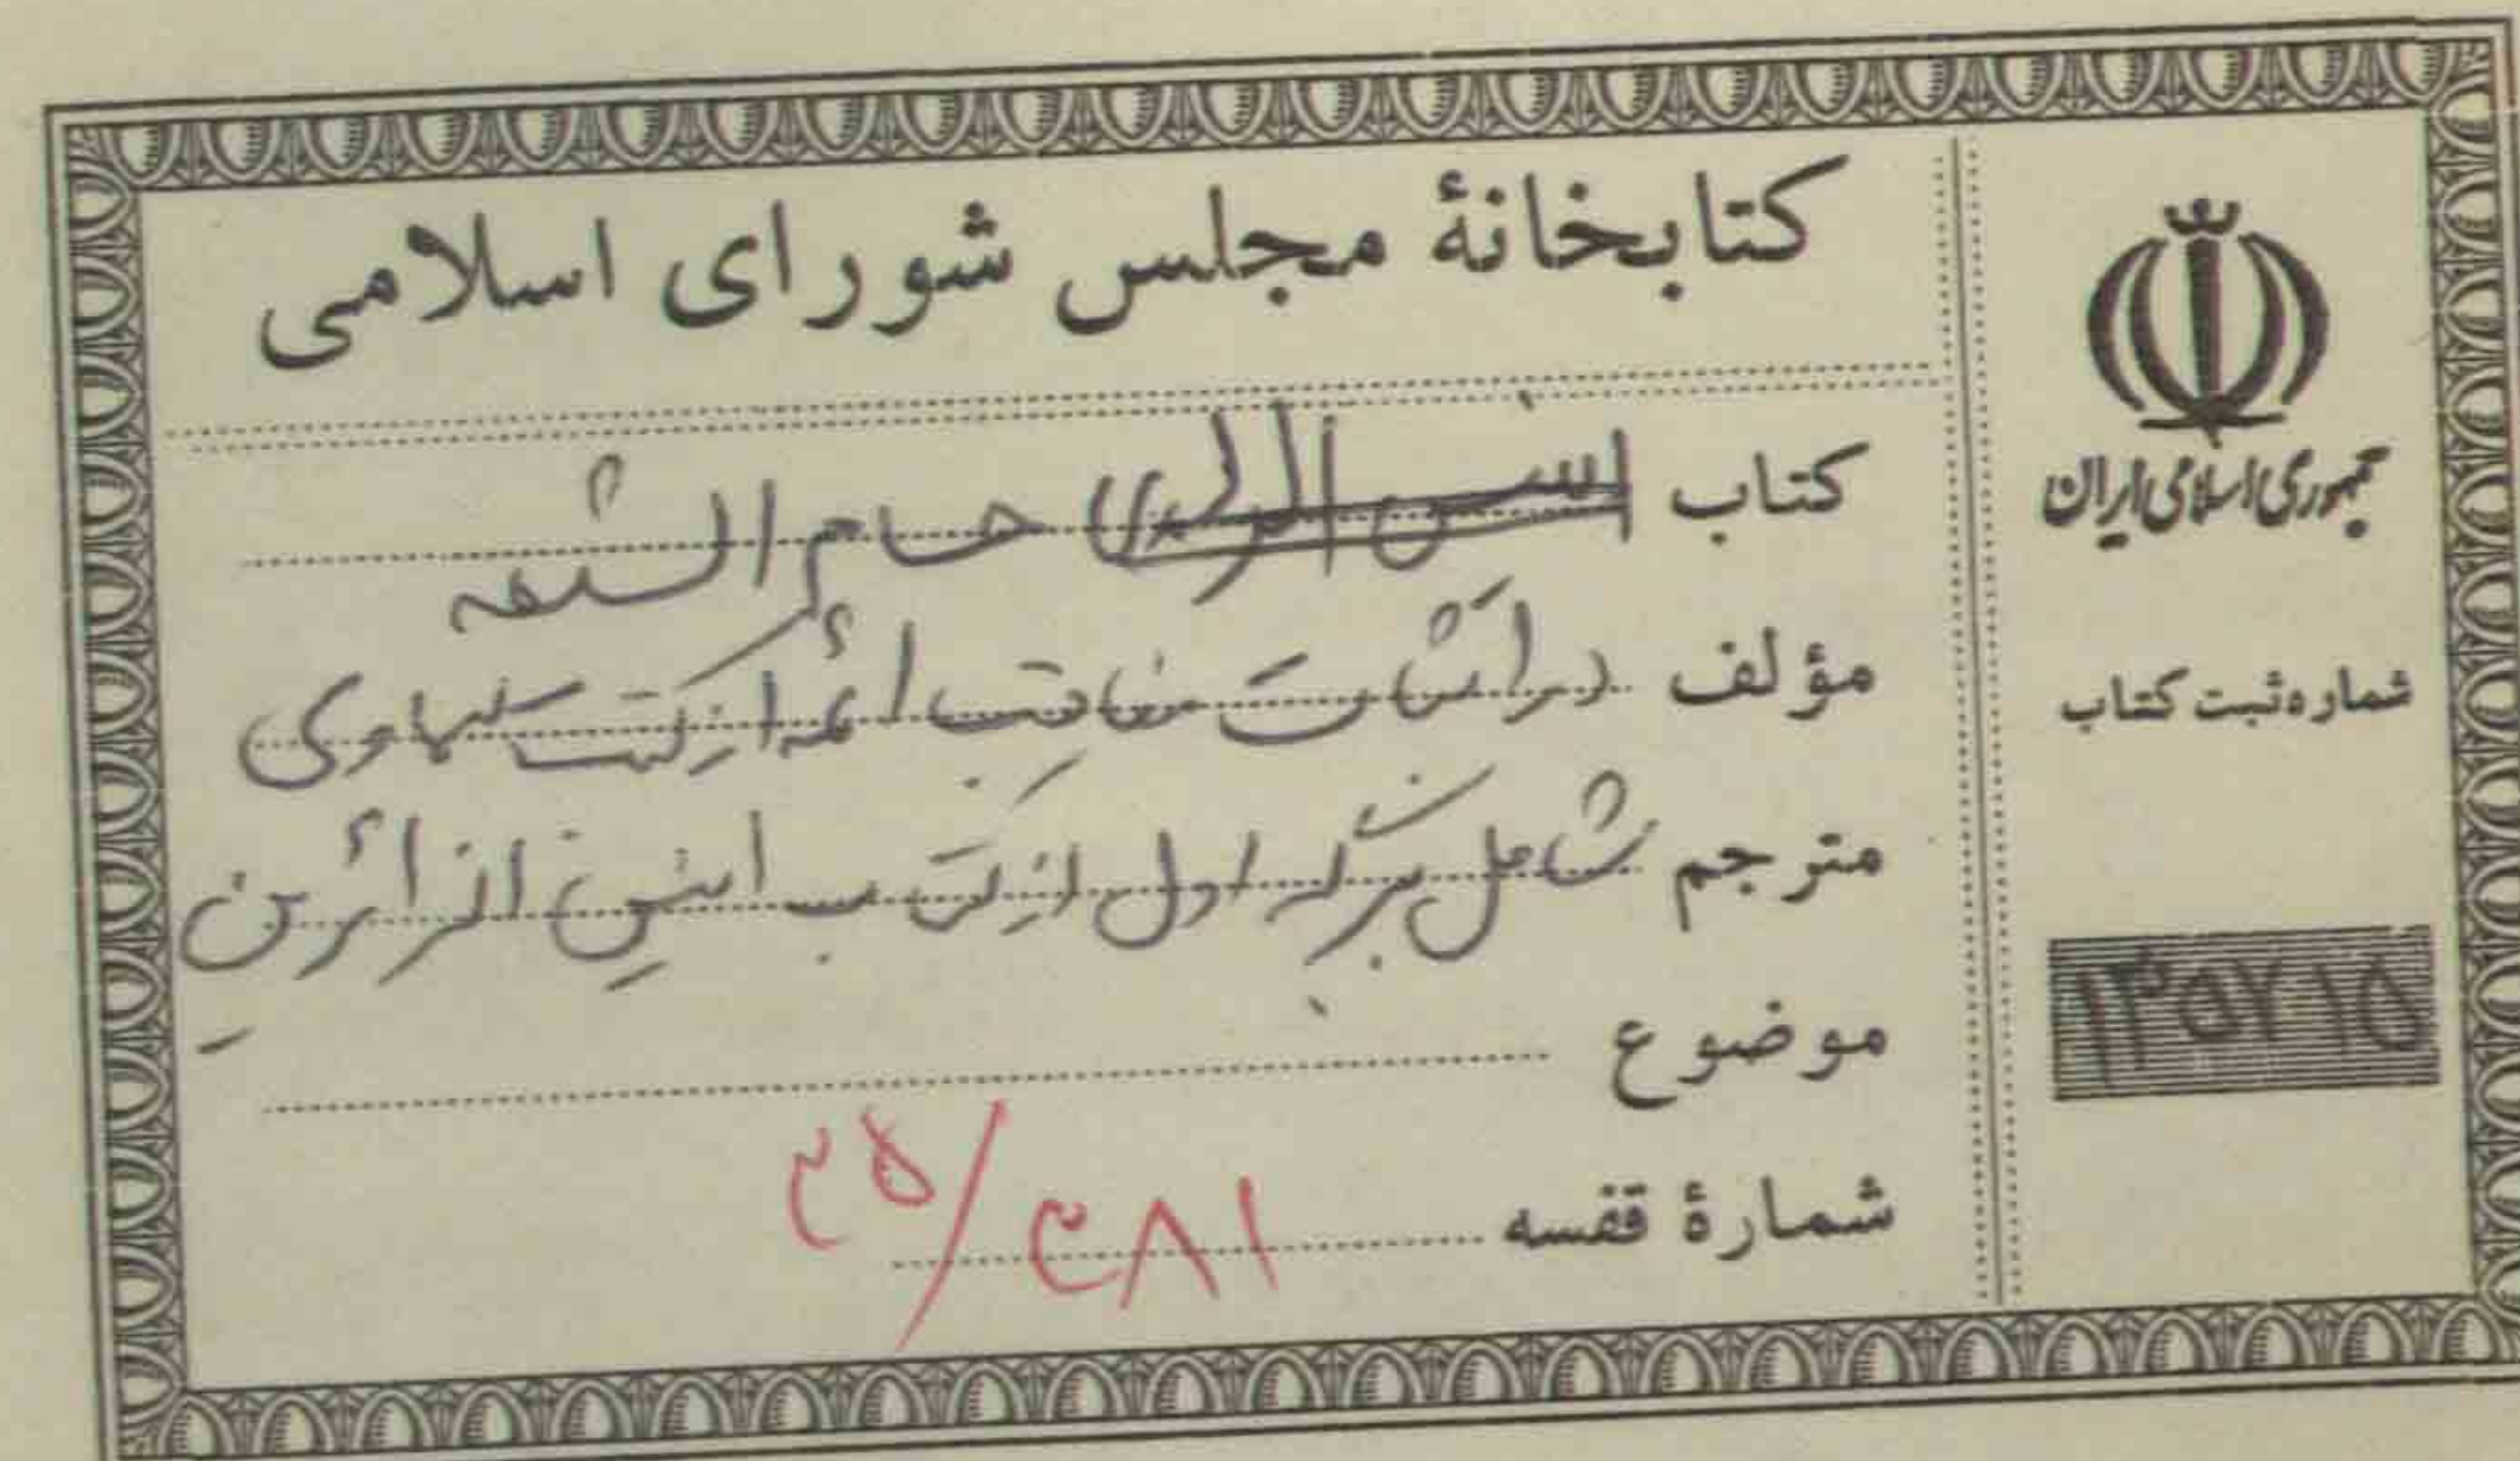 کتابخانهٔ مجلس شورای اسلامی
کتاب حسام الشیعه
مؤلف در اثبات مناقب ائمه از کتب سماوی
مترجم شامل برگ اول از کتاب انیس الزائرین
موضوع
شمارهٔ قفسه ۱۸۴/۵۳
جمهوری اسلامی ایران
شماره ثبت کتاب
۱۳۵۷۱۵